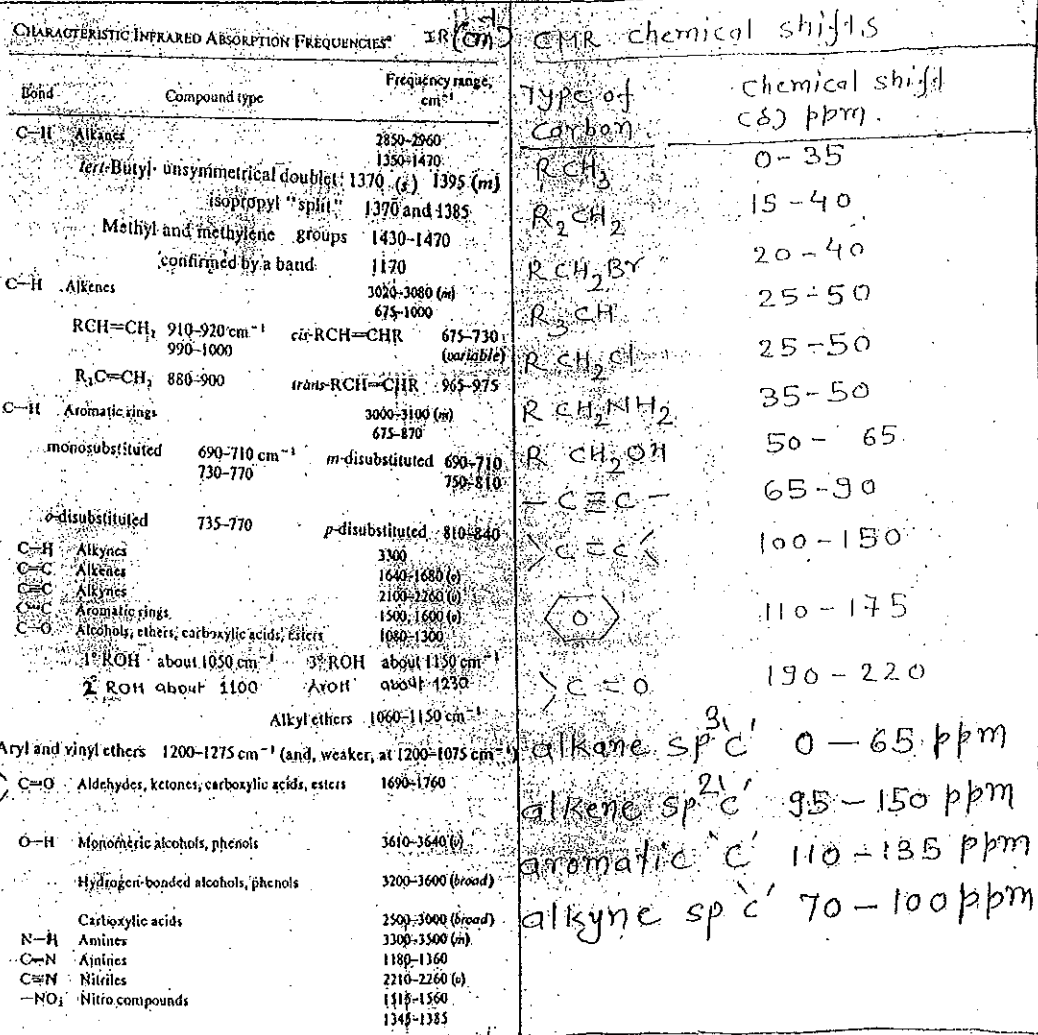 CHARACTERISTIC INFRARED ABSORPTION FREQUENCIES IR (cm⁻¹)
Bond Compound type Frequency range, cm⁻¹
C—H Alkanes 2850–2960
1350–1470
tert-Butyl- unsymmetrical doublet: 1370 (s) 1395 (m)
isopropyl "split" 1370 and 1385
Methyl and methylene groups 1430–1470
confirmed by a band 1170
C—H Alkenes 3020–3080 (m)
675–1000
RCH=CH₂ 910–920 cm⁻¹ cis-RCH=CHR 675–730
990–1000 (variable)
R₂C=CH₂ 880–900 trans-RCH=CHR 965–975
C—H Aromatic rings 3000–3100 (m)
675–870
monosubstituted 690–710 cm⁻¹ m-disubstituted 690–710
730–770 750–810
o-disubstituted 735–770 p-disubstituted 810–840
C—H Alkynes 3300
C=C Alkenes 1640–1680 (v)
C≡C Alkynes 2100–2260 (v)
C=C Aromatic rings 1500, 1600 (v)
C—O Alcohols, ethers, carboxylic acids, esters 1080–1300
1° ROH about 1050 cm⁻¹ 3° ROH about 1150 cm⁻¹
2° ROH about 1100 ArOH about 1230
Alkyl ethers 1060–1150 cm⁻¹
Aryl and vinyl ethers 1200–1275 cm⁻¹ (and, weaker, at 1200–1075 cm⁻¹)
C=O Aldehydes, ketones, carboxylic acids, esters 1690–1760
O—H Monomeric alcohols, phenols 3610–3640 (v)
Hydrogen-bonded alcohols, phenols 3200–3600 (broad)
Carboxylic acids 2500–3000 (broad)
N—H Amines 3300–3500 (m)
C—N Amines 1180–1360
C≡N Nitriles 2210–2260 (v)
—NO₂ Nitro compounds 1515–1560
1345–1385
CMR chemical shifts
Type of Carbon Chemical shift (δ) ppm.
RCH₃ 0-35
R₂CH₂ 15-40
RCH₂Br 20-40
R₃CH 25-50
RCH₂Cl 25-50
RCH₂NH₂ 35-50
RCH₂OH 50-65
—C≡C— 65-90
>C=C< 100-150
110-175
>C=O 190-220
alkane sp³ 'c' 0-65 ppm
alkene sp² 'c' 95-150 ppm
aromatic 'c' 110-135 ppm
alkyne sp 'c' 70-100 ppm